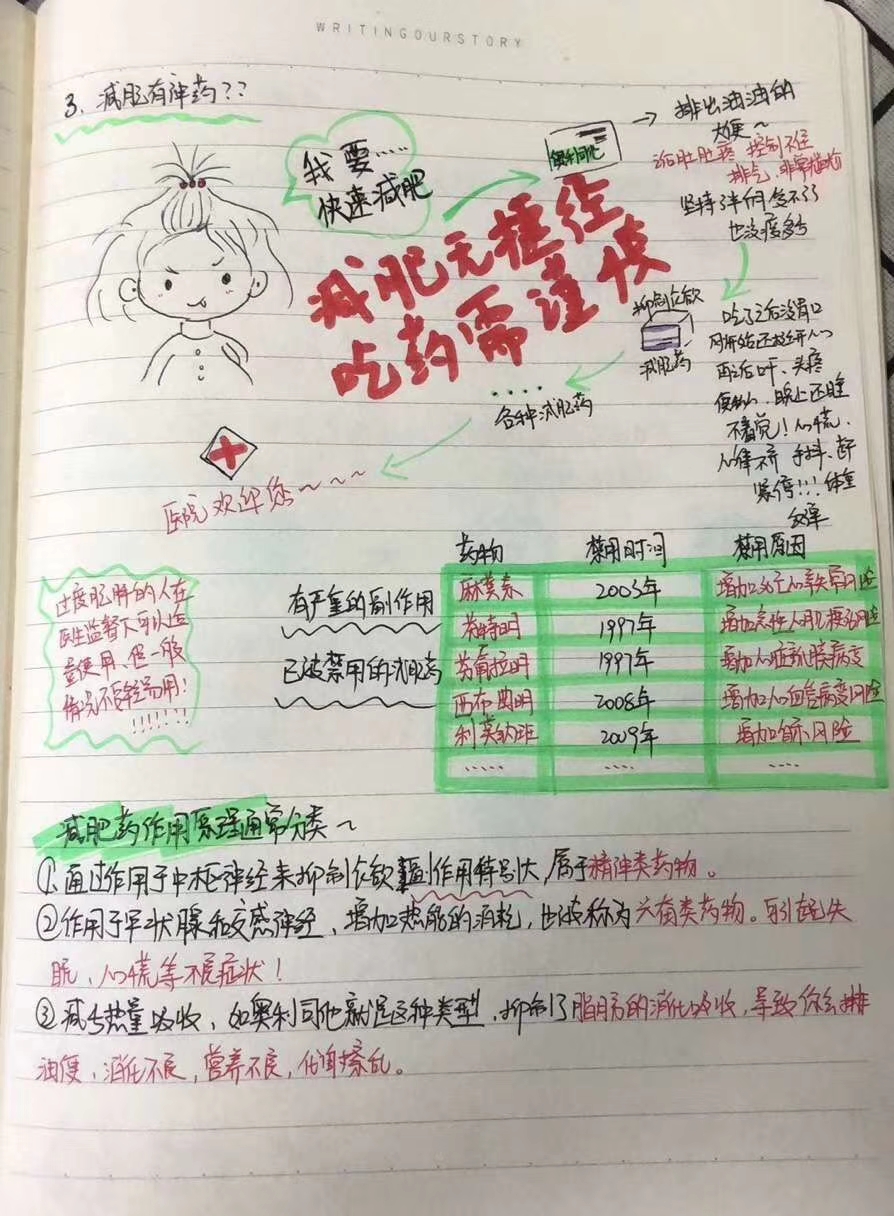 WRITINGOURSTORY
3. 减肥有神药??
我要....
快速减肥
奥利司他
→ 排出油油的
大便~
控制不住
排气,非常尴尬
坚持了半个月,受不了
也没瘦多少
减肥无捷径
吃药需谨慎
抑制食欲
减肥药
吃了之后没胃口
刚开始还挺开心
再之后吐、头疼
便秘、晚上还睡
不着觉!心慌、
心律不齐 手抖、
紧绷!!! 体重
....
各种减肥药
医院欢迎您~~~
过度肥胖的人在
医生监督下可以适
量使用、但一般
情况不要轻易用!
!!!!!!!
有严重的副作用
已被禁用的减肥药
药物 禁用时间 禁用原因
麻黄素 2003年 增加死亡心率失常风险
芬特明 1997年 增加急性心肌梗死风险
芬氟拉明 1997年 增加心脏瓣膜病变
西布曲明 2008年 增加心血管病变风险
利莫纳班 2009年 增加自杀风险
..... .... ....
减肥药作用原理通常分类~
①、通过作用于中枢神经来抑制食欲,副作用特别大,属于精神类药物。
②作用于甲状腺和交感神经、增加热能的消耗,也被称为兴奋类药物。引起失
眠、心慌等不良症状!
③减少热量吸收、如奥利司他就是这种类型,抑制了脂肪的消化吸收,导致你会排
油便、消化不良,营养不良,代谢紊乱。